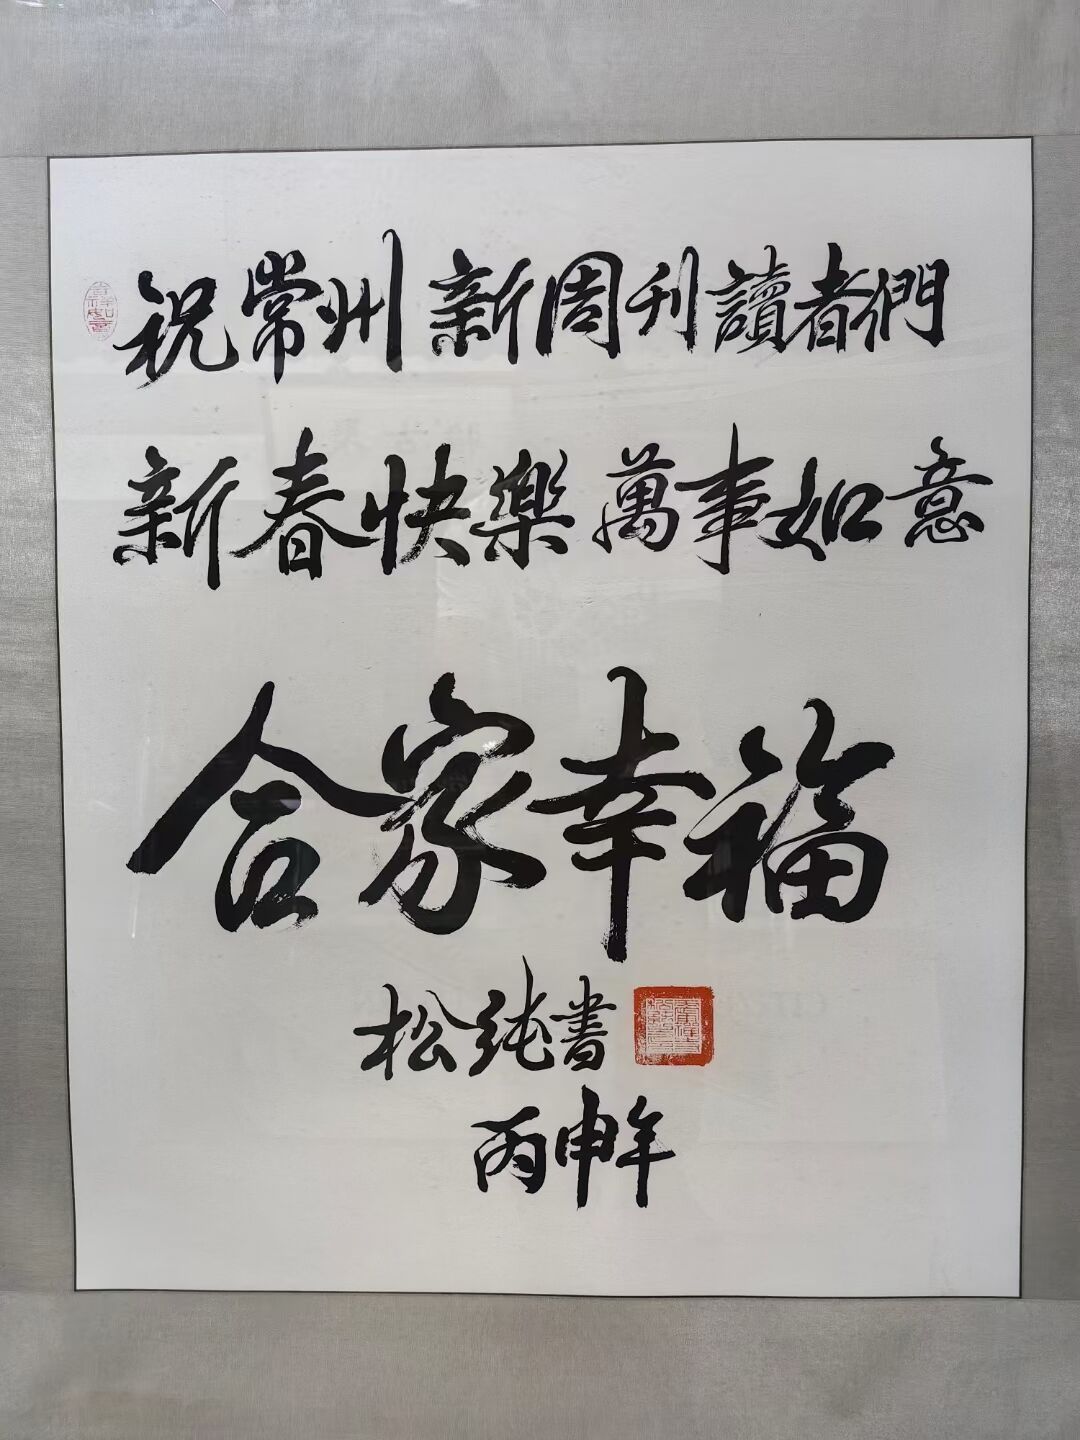 祝常州新周刊讀者們
新春快樂萬事如意
合家幸福
松纯書
丙申年